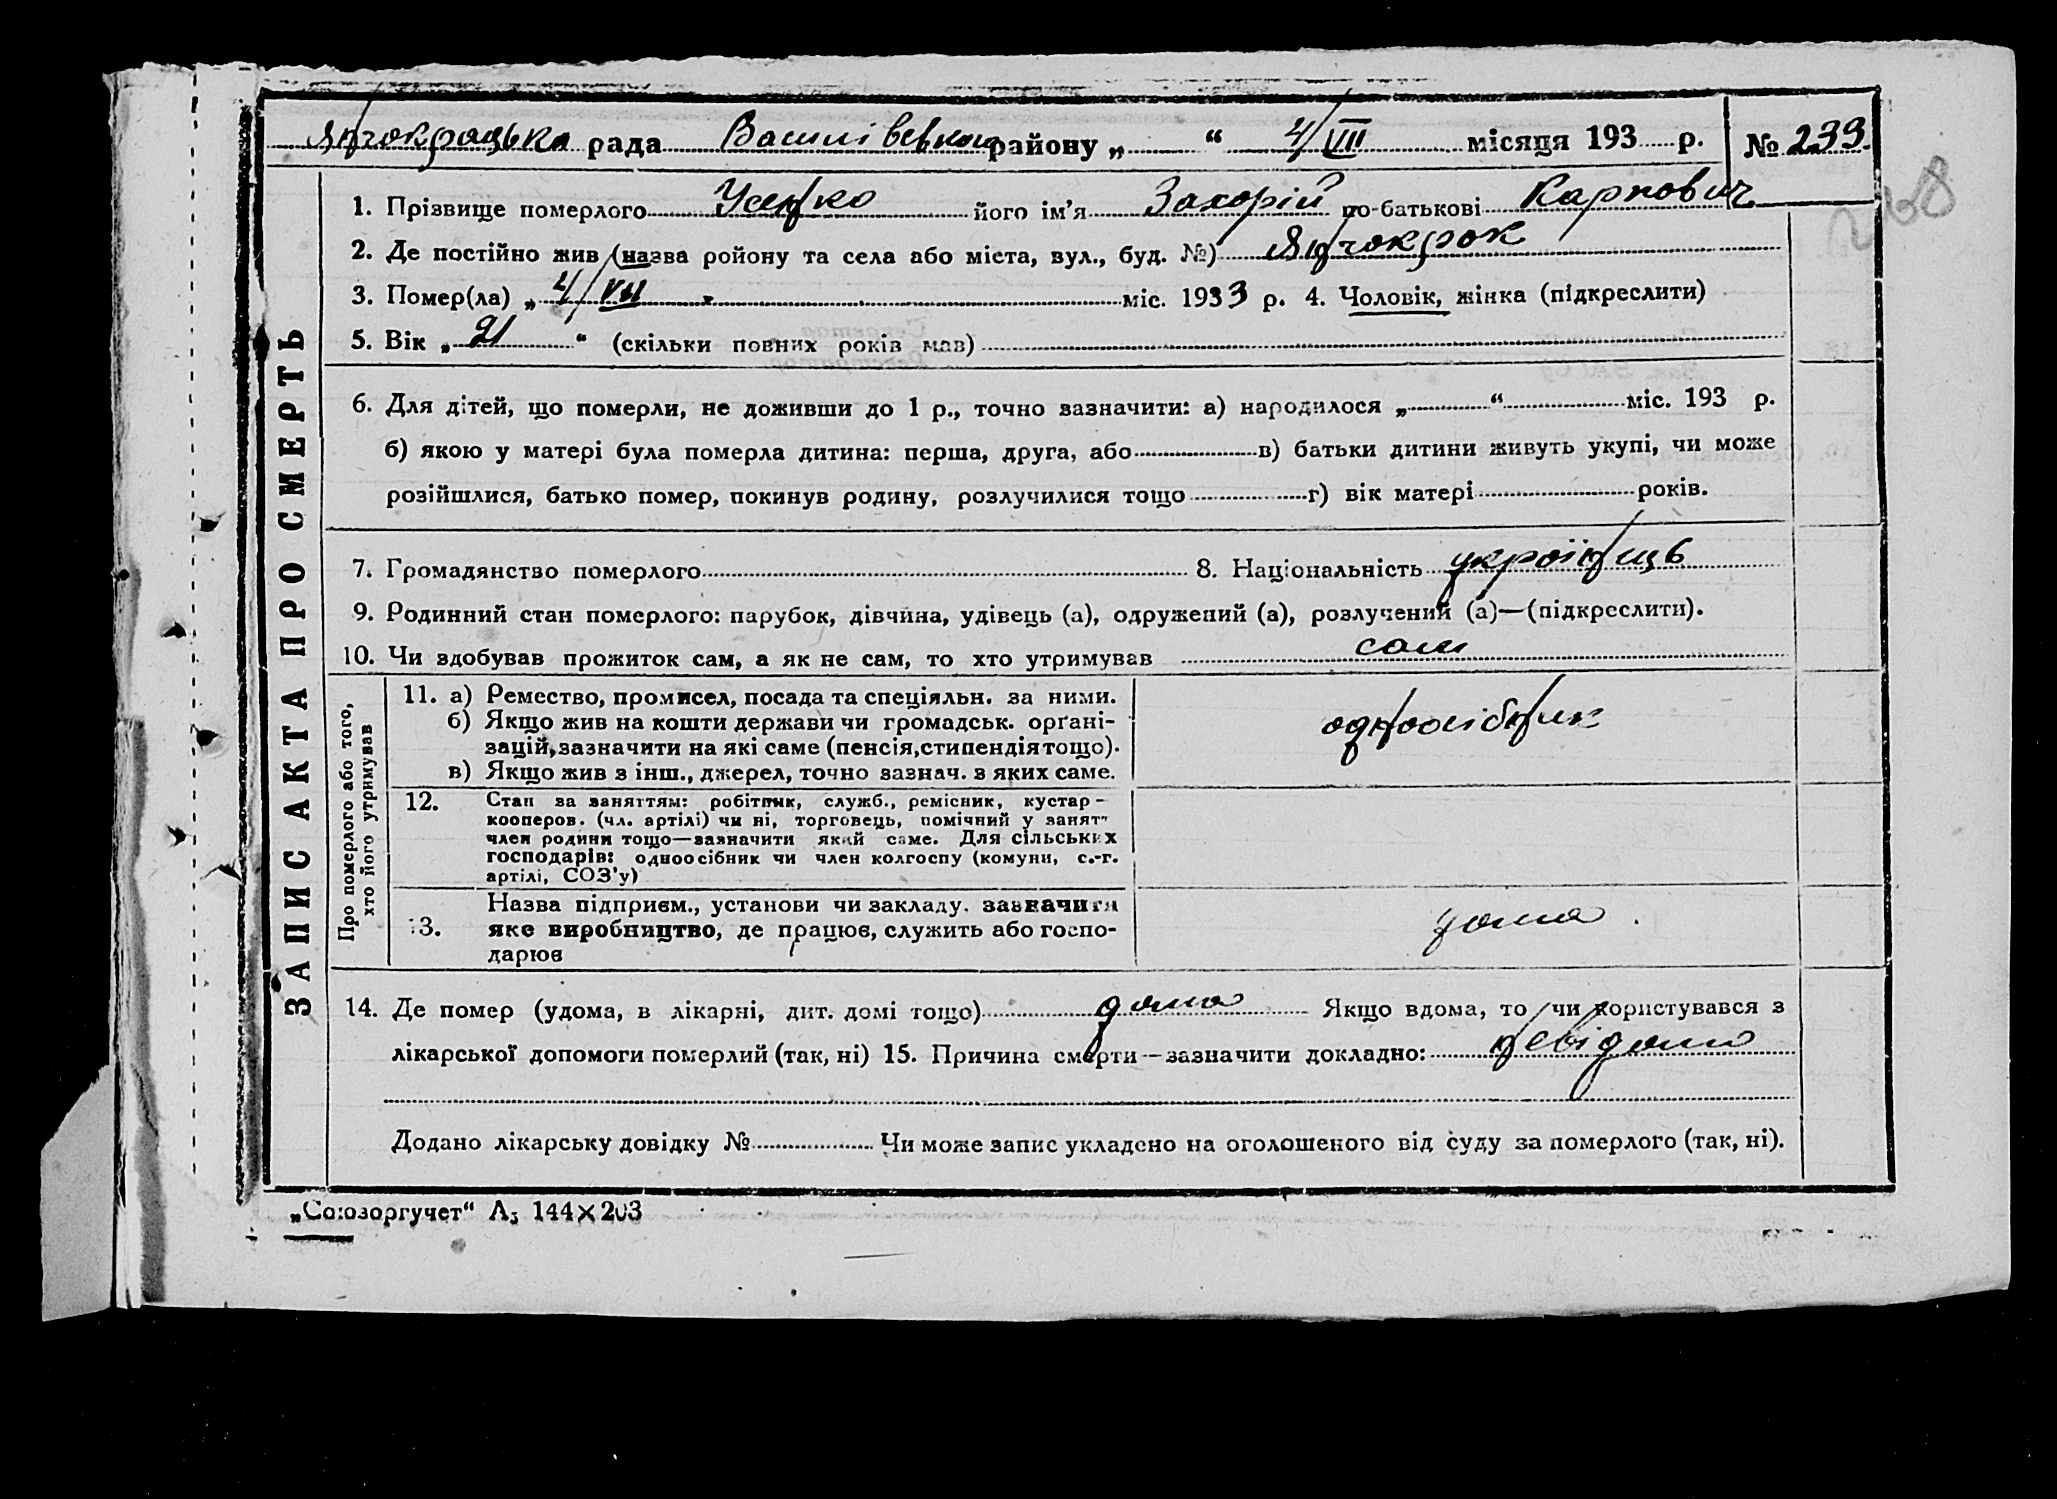 Янчокрацька рада Василівського району „ “ 4/VII місяця 193 р. № 239.
268
1. Прізвище померлого Усенко його ім’я Захорій по-батькові Карпович
2. Де постійно жив (назва ройону та села або міста, вул., буд. №) Янчокрок
3. Помер(ла) „ 4/VII міс. 1933 р. 4. Чоловік, жінка (підкреслити)
5. Вік „ 21 “ (скільки повних років мав)
6. Для дітей, що померли, не доживши до 1 р., точно зазначити: а) народилося „ “ міс. 193 р.
б) якою у матері була померла дитина: перша, друга, або в) батьки дитини живуть укупі, чи може
розійшлися, батько помер, покинув родину, розлучилися тощо г) вік матері років.
7. Громадянство померлого 8. Національність україńець
9. Родинний стан померлого: парубок, дівчина, удівець (а), одружений (а), розлучений (а)—(підкреслити).
10. Чи здобував прожиток сам, а як не сам, то хто утримував сам
ЗАПИС АКТА ПРО СМЕРТЬ
Про померлого або того, хто його утримував
11. а) Ремество, промисел, посада та спеціяльн. за ними.
б) Якщо жив на кошти держави чи громадськ. орґані-
зацій, зазначити на які саме (пенсія, стипендія тощо).
в) Якщо жив з інш., джерел, точно зазнач. з яких саме.
одноосібник
12. Стан за заняттям: робітник, служб., ремісник, кустар –
кооперов. (чл. артілі) чи ні, торговець, помічний у занят
член родини тощо—зазначити який саме. Для сільських
господарів: одноосібник чи член колгоспу (комуни, с.-г.
артілі, СОЗ’у)
13. Назва підприєм., установи чи закладу. зазначити
яке виробництво, де працює, служить або госпо-
дарює
дома.
14. Де помер (удома, в лікарні, дит. домі тощо) дома Якщо вдома, то чи користувався з
лікарської допомоги померлий (так, ні) 15. Причина смерти—зазначити докладно: невідомо
Додано лікарську довідку № Чи може запис укладено на оголошеного від суду за померлого (так, ні).
„Союзоргучет“ А5 144×203